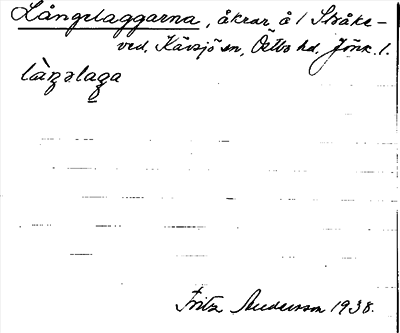 Långelaggarna, åkrar å 1 Stråke-
ved, Kävsjö sn, Östbo hd, Jönk. l.
làŋəlaga
Fritz Andersson 1938.